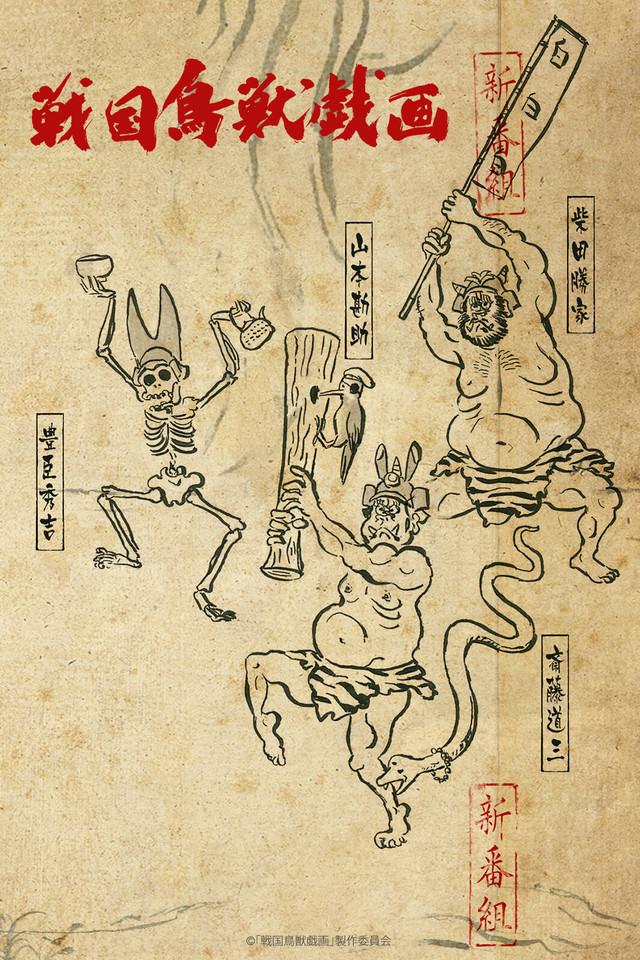 戦国鳥獣戯画
新番組
柴田勝家
山本勘助
豊臣秀吉
斎藤道三
新番組
©「戦国鳥獣戯画」製作委員会